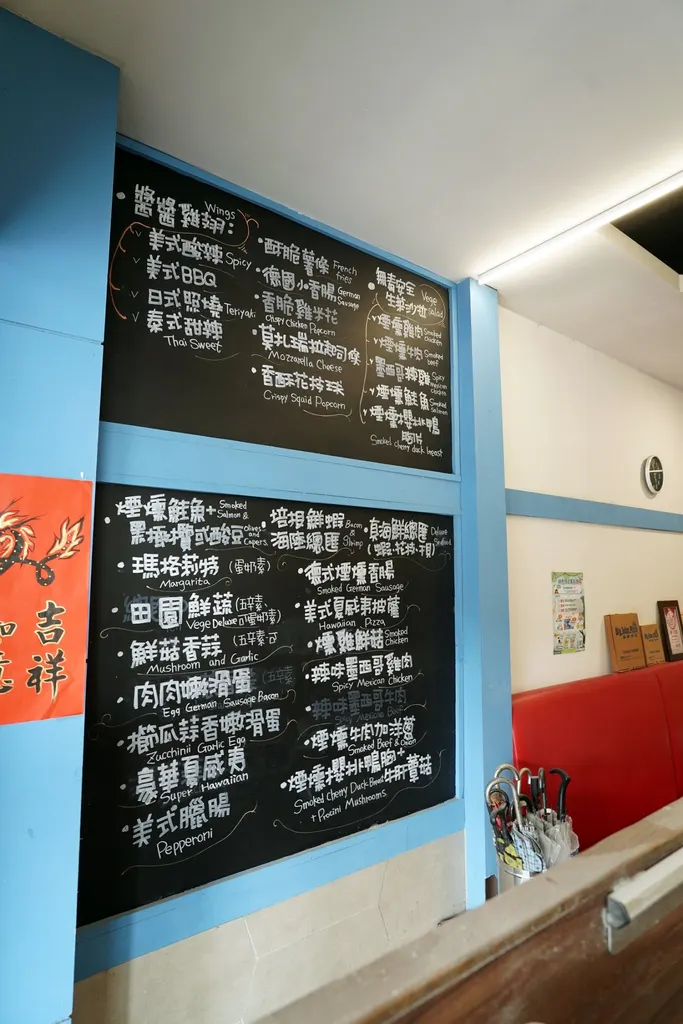 醬醬雞翅: Wings
美式酸辣 Spicy
美式BBQ
日式照燒 Teriyaki
泰式甜辣
Thai Sweet
酥脆薯條 French fries
德國小香腸 German Sausage
香脆雞米花
Crispy Chicken Popcorn
莫扎瑞拉起司條
Mozzarella Cheese
香酥花枝球
Crispy Squid Popcorn
無毒安全
生菜沙拉 Vege Salad
煙燻雞肉 Smoked chicken
煙燻牛肉 Smoked beef
墨西哥辣雞 Spicy mexican chicken
煙燻鮭魚 Smoked Salmon
煙燻櫻桃鴨
胸片
Smoked cherry duck breast
煙燻鮭魚+ Smoked Salmon &
黑橄欖或酸豆 Olives and Capers
瑪格莉特 (蛋奶素)
Margarita
田園鮮蔬 (五辛素
Vege Deluxe 可蛋奶素)
鮮菇香蒜 (五辛素可
Mushroom and Garlic
肉肉嫩滑蛋
Egg German Sausage Bacon
櫛瓜蒜香嫩滑蛋
Zucchinii Garlic Egg
豪華夏威夷
Super Hawaiian
美式臘腸
Pepperoni
培根鮮蝦 Bacon &
海陸總匯 Shrimp
真海鮮總匯 Deluxe
Seafood
德式煙燻香腸
Smoked German Sausage
美式夏威夷披薩
Hawaiian Pizza
燻雞鮮菇 Smoked Chicken
辣味墨西哥雞肉
Spicy Mexican Chicken
辣味墨西哥牛肉
Spicy Mexican Beef
煙燻牛肉加洋蔥
Smoked Beef & Onion
煙燻櫻桃鴨胸+牛肝蘑菇
Smoked Cherry Duck Breast
+ Procini Mushrooms
吉祥